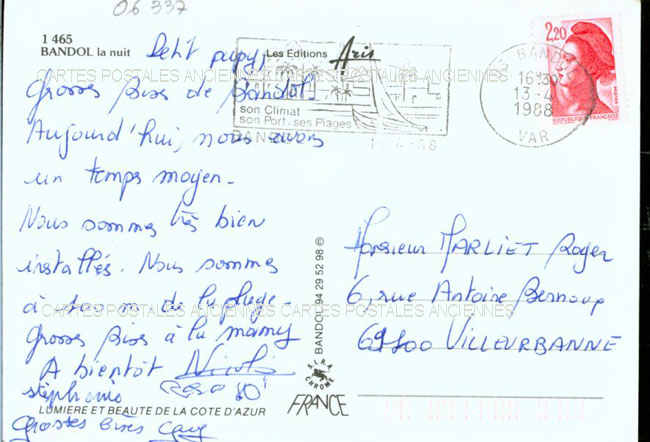 06 337
1 465
BANDOL la nuit
Petit papy,
Les Editions Aris
CARTES POSTALES ANCIENNES CARTES POSTALES ANCIENNES
Grosses bises de Bandol.
son Climat
son Port ses Plages
BANDOL
16H30
13-4
1988
VAR
2,20
REPUBLIQUE FRANCAISE
Aujourd'hui, nous avons
un temps moyen.
Nous sommes très bien
installés. Nous sommes
à 500 m de la plage.
CARTES POSTALES ANCIENNES CARTES POSTALES ANCIENNES
Grosses bises à la mamy
A bientôt
stéphanie
LUMIERE ET BEAUTE DE LA COTE D'AZUR
Grosses bises
BANDOL 94 29 52 98 ©
CHROME
FRANCE
Monsieur MARLIET Roger
6, rue Antoine
69100 VILLEURBANNE